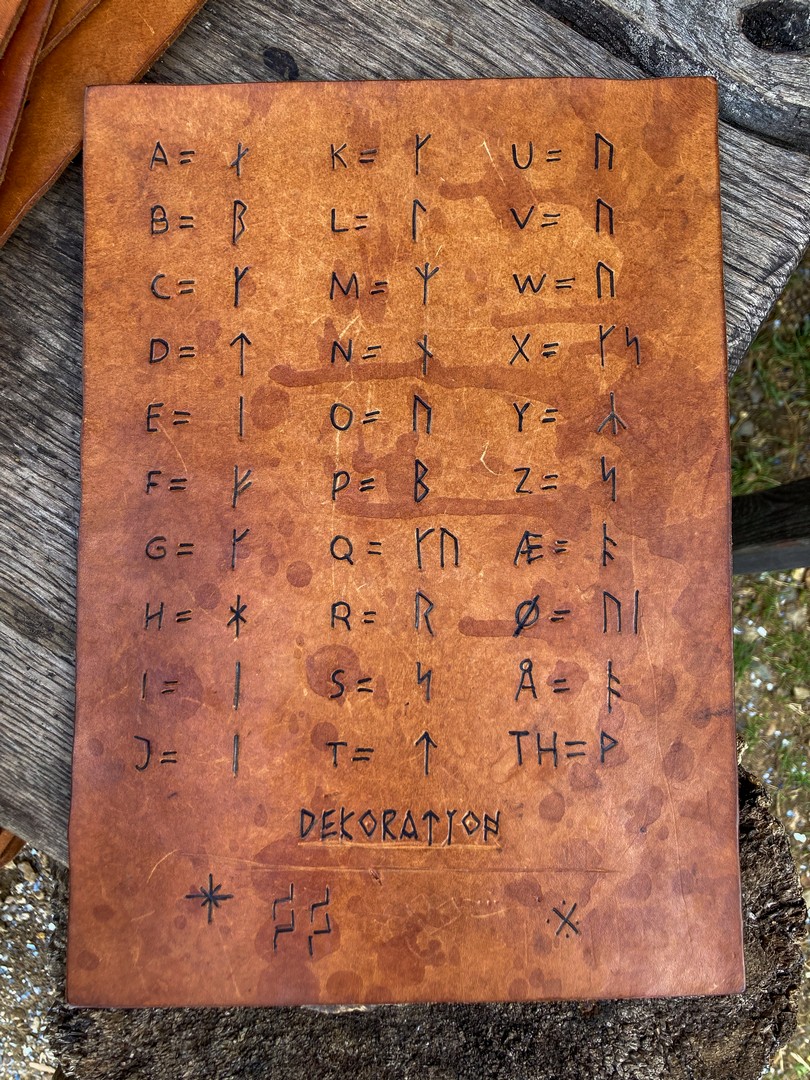 A = ᚋ K = ᚴ U = ᚢ
B = ᛒ L = ᛚ V = ᚢ
C = ᚴ M = ᛉ W = ᚢ
D = ᛏ N = ᚾ X = ᚴᛋ
E = ᛁ O = ᚢ Y = ᛦ
F = ᚠ P = ᛒ Z = ᛋ
G = ᚴ Q = ᚴᚢ Æ = ᚬ
H = ᚼ R = ᚱ Ø = ᚢᛁ
I = ᛁ S = ᛋ Å = ᚬ
J = ᛁ T = ᛏ TH = ᚦ
DEKORATION